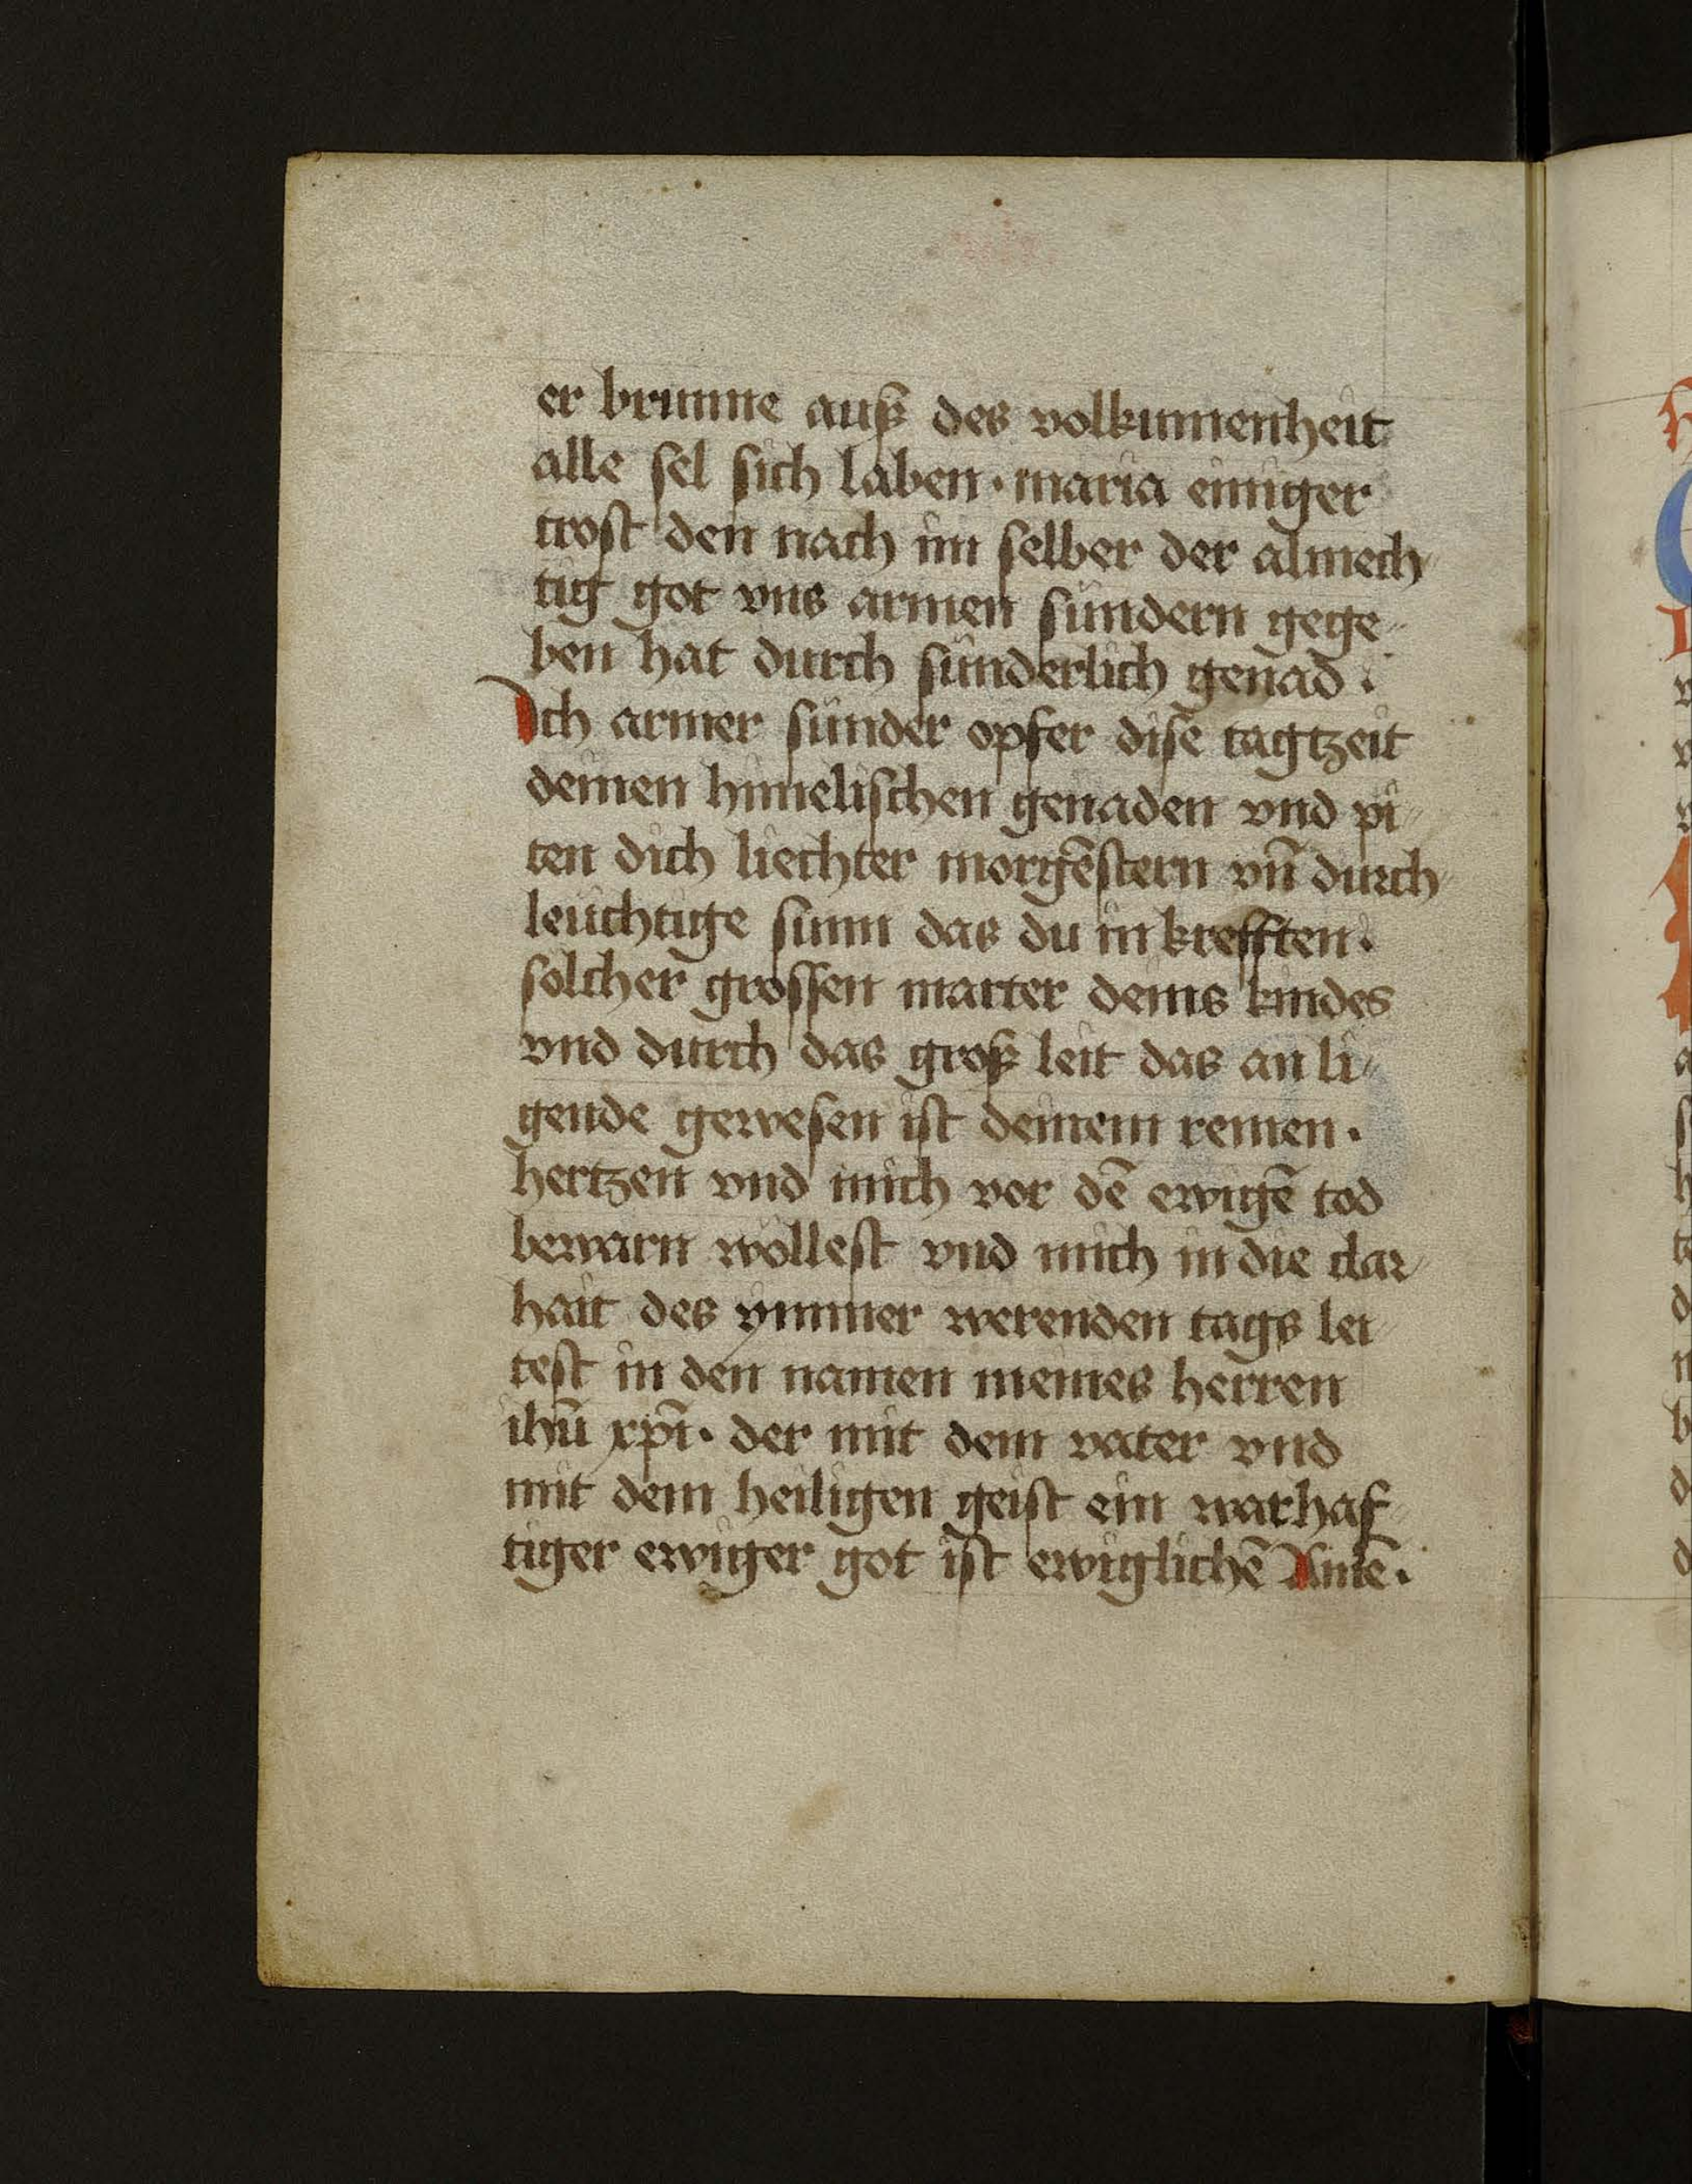 er brunne auß des volkumenheit
alle sel sich laben · maria einiger
trost den nach im selber der almech
tig got vns armen sünder̄n gege
ben hat durch sünderlich genad .
Ich armer sünder opfer dise tagtzeit
deinen himelischen genaden vnd pi
ten dich liechter morgēstern vn̄ durch
leüchtige sunn das du in krefften ·
solcher grossen marter deins kindes
vnd durch das groß leit das an li
gende gewesen ist deinem reinen ·
hertzen vnd mich vor dē ewigē tod
bewarn wöllest vnd mich in die clar
hait des ymmer werenden tags lei
test in den namen meines herren
ihū xpī · der mit dem vater vnd
mit dem heiligen geist ein warhaf
tiger ewiger got ist ewiglichē Amē ·